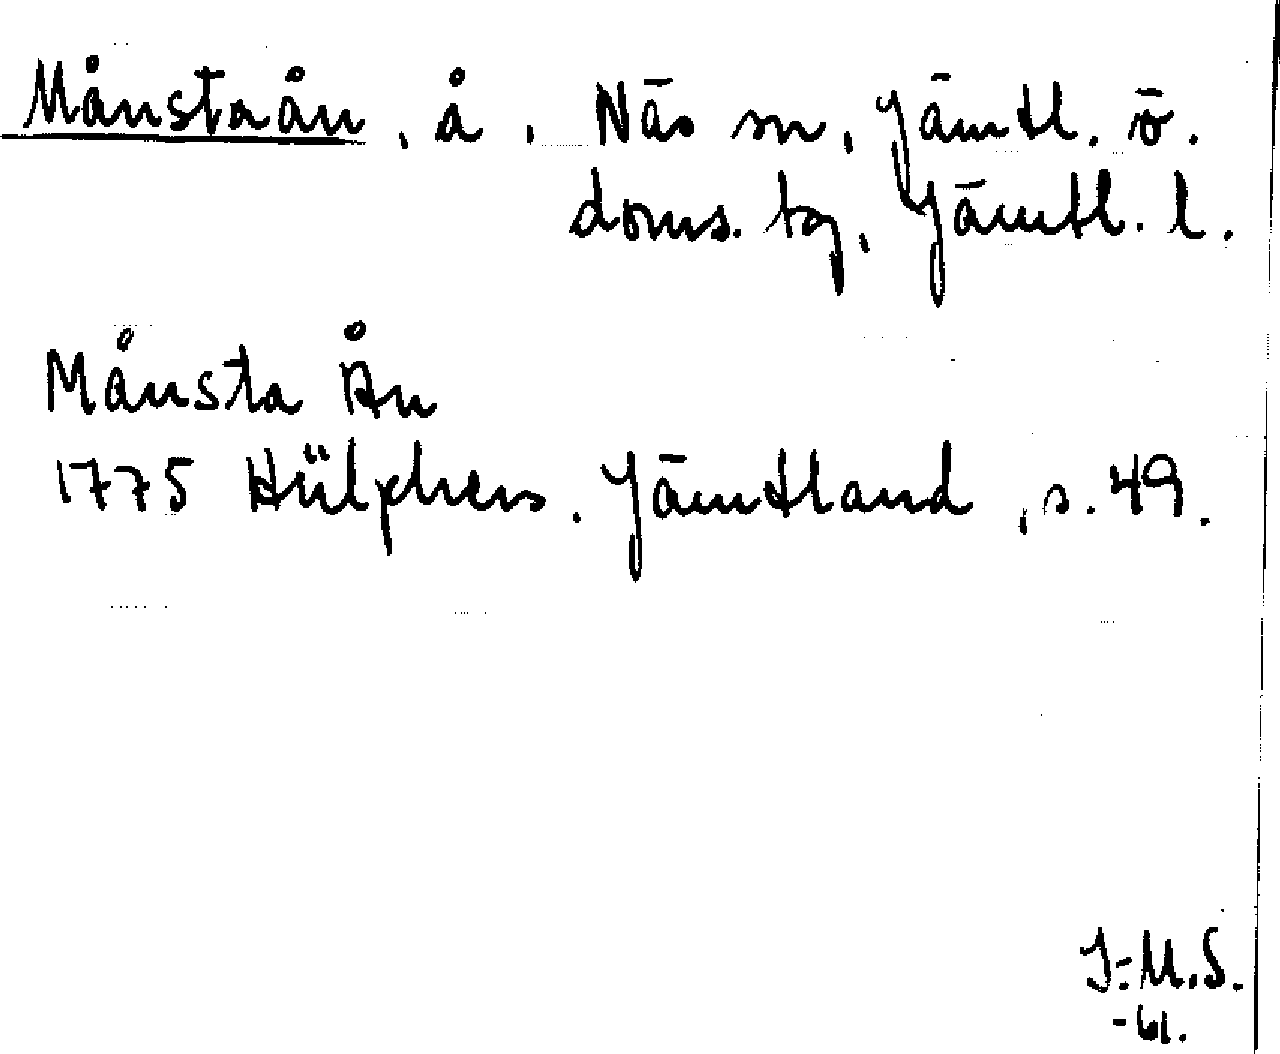 Månstaån, å. Näs sn, Jämtl. ö.
doms. tg, Jämtl. l.
Månsta Ån
1775 Hülphers. Jämtland, s. 49.
J-M.S.
-61.